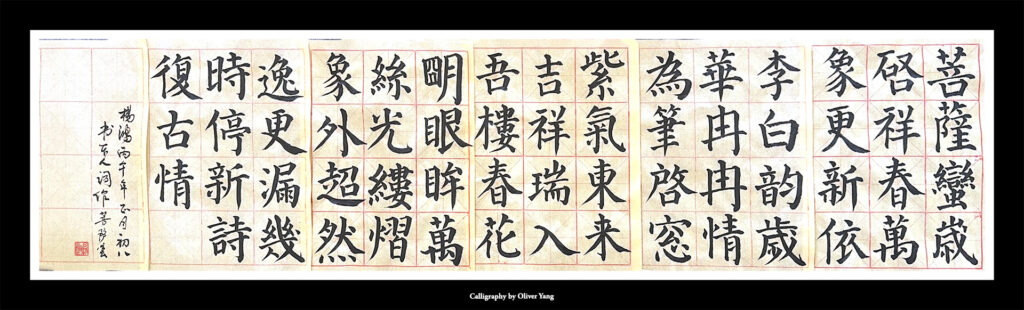 菩薩蠻歳
啓祥春萬
象更新依
李白韵歳
華冉冉情
為筆啓窓
紫氣東来
吉祥瑞入
吾樓春花
朙眼眸萬
絲光縷熠
象外超然
逸更漏幾
時停新詩
復古情
楊鴻丙午年正月初八
Calligraphy by Oliver Yang